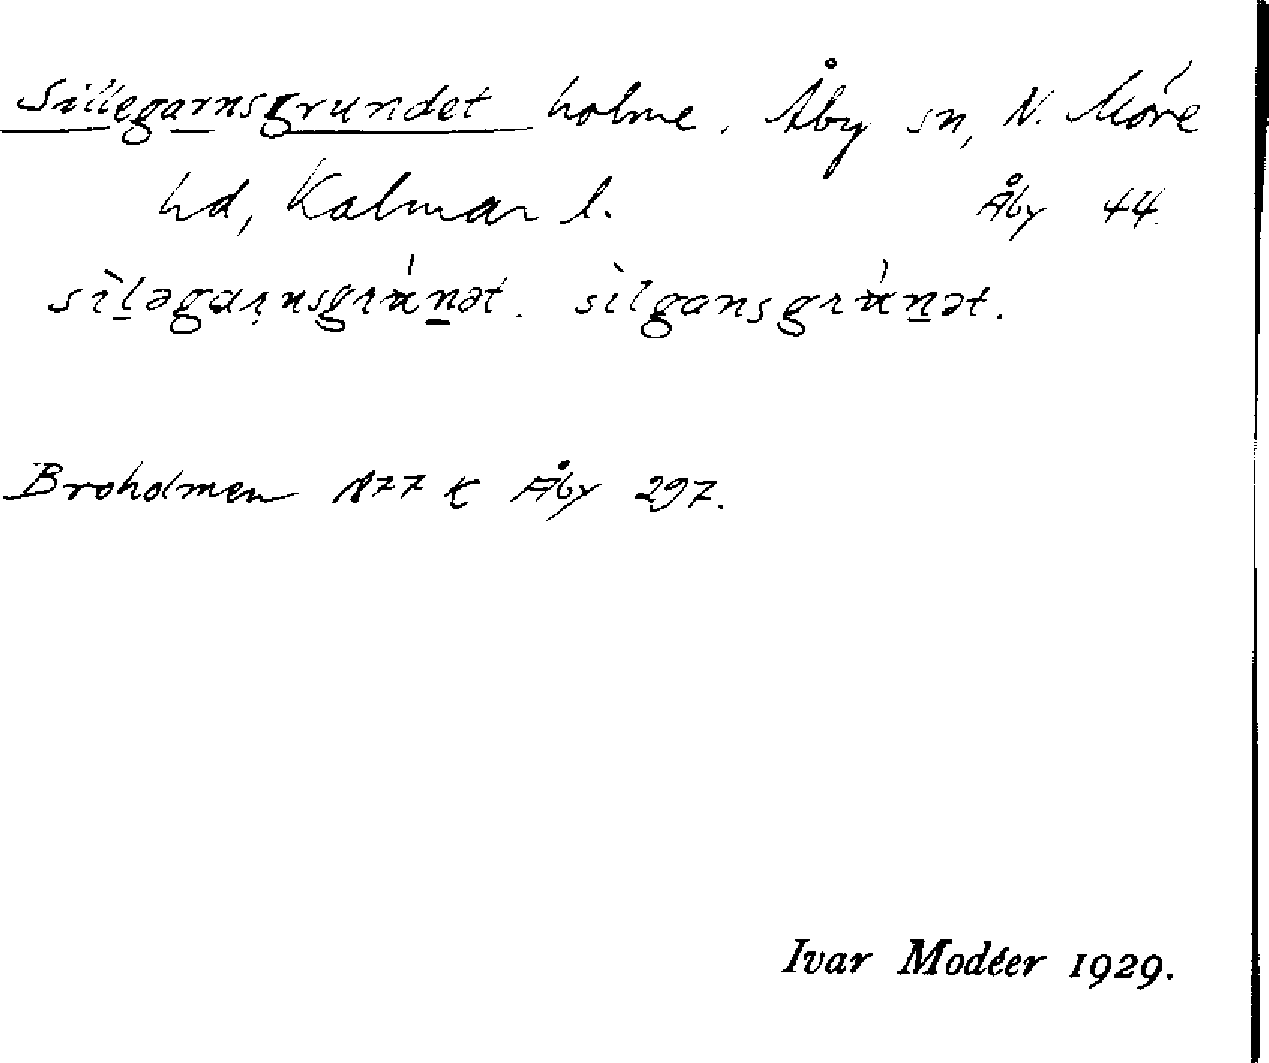 Sillegarnsgrundet holme. Åby sn, N. Möre
hd, Kalmar l. Åby 44.
sìl̲əgaṛnsgrú̀n̲ət. sìlgansgrú̀n̲ət.
Broholmen 1877 K Åby 297.
Ivar Modéer 1929.